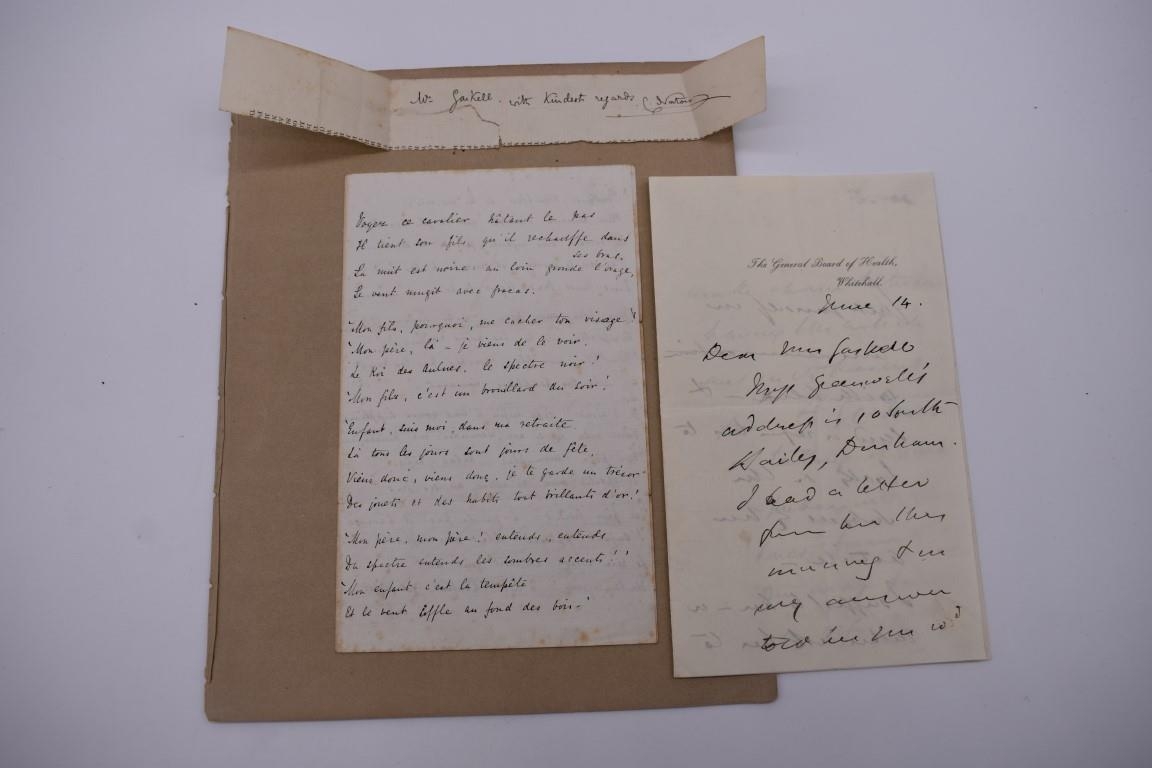 Mr Gaskell. with kindest regards
Voyez ce cavalier hâtant le pas
Il tient son fils qu'il rechauffe dans
ses bras.
La nuit est noire au loin gronde l'orage,
Le vent mugit avec fracas.
"Mon fils, pourquoi, me cacher ton visage!
"Mon père, là - je viens de le voir.
Le Roi des Aulnes. le spectre noir!
"Mon fils, c'est un brouillard du soir!
"Enfant, suis moi, dans ma retraite
Là tous les jours sont jours de fête,
Viens donc, viens donc, je te garde un trésor
Des jouets et des habits tout brillants d'or!
"Mon père, mon père! entends, entends
Du spectre entends les sombres accents!!
"Mon enfant c'est la tempête
Et le vent siffle au fond des bois-"
The General Board of Health,
Whitehall.
June 14.
Dear Mrs Gaskell
Miss Greenwell's
address is 10 South
Bailey, Durham.
I had a letter
from her this
morning & in
my answer
told her you wd